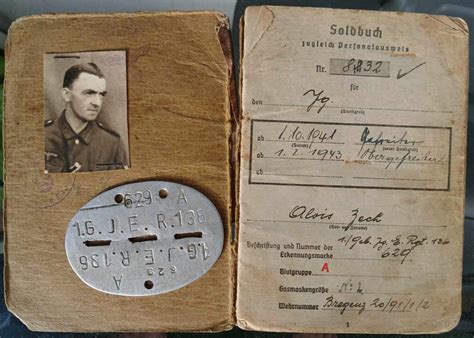 629 A
1.G.J.E.R.136
1.G.J.E.R.136
629
A
Soldbuch
zugleich Personalausweis
Nr. 8832
für
den Jg.
(Dienstgrad)
ab 1.10.1941 Gefreiter
(Datum) (neuer Dienstgrad)
ab 1.2.1943 Obergefreiter
Alois Zech
(Vor- und Zuname)
Beschriftung und Nummer der
Erkennungsmarke
629
Blutgruppe A
Gasmaskengröße
Wehrnummer Bregenz 20/91/1/2
1